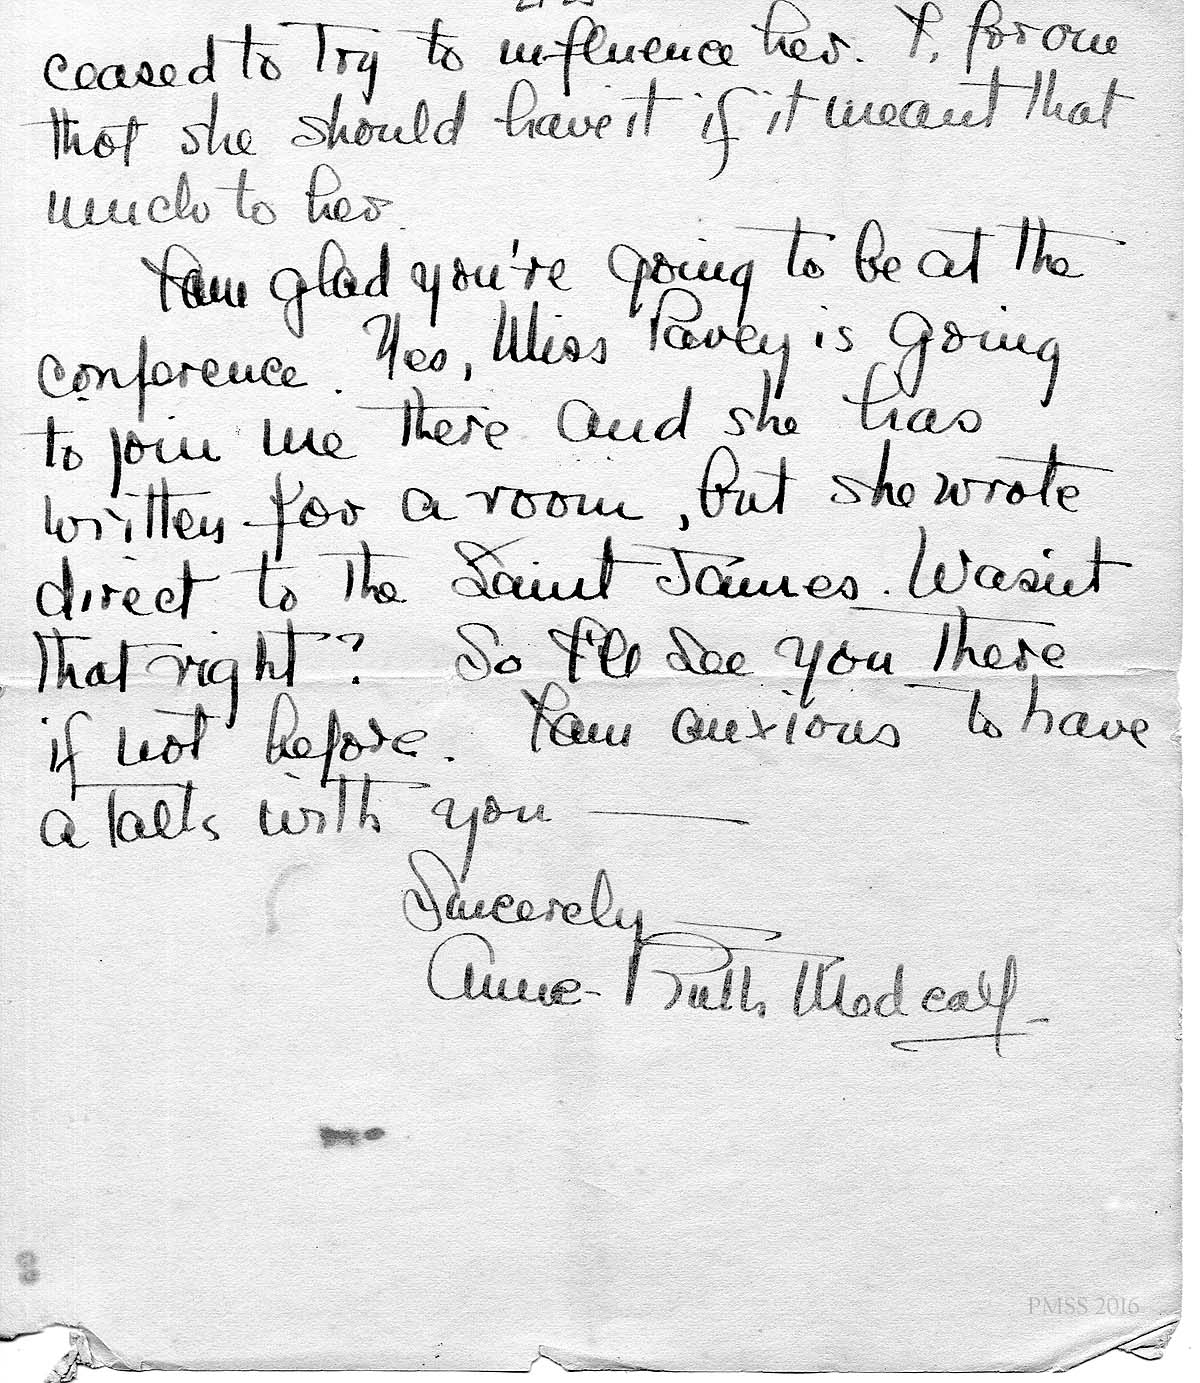 ceased to try to influence her. I, for one
that she should have it if it meant that
much to her.
I am glad you're going to be at the
conference. Yes, Miss Pavey is going
to join me there and she has
written for a room, but she wrote
direct to the Saint James. Wasn't
that right? So I'll see you there
if not before. I am anxious to have
a talk with you —
Sincerely
Anne-Ruth Medcalf
PMSS 2016